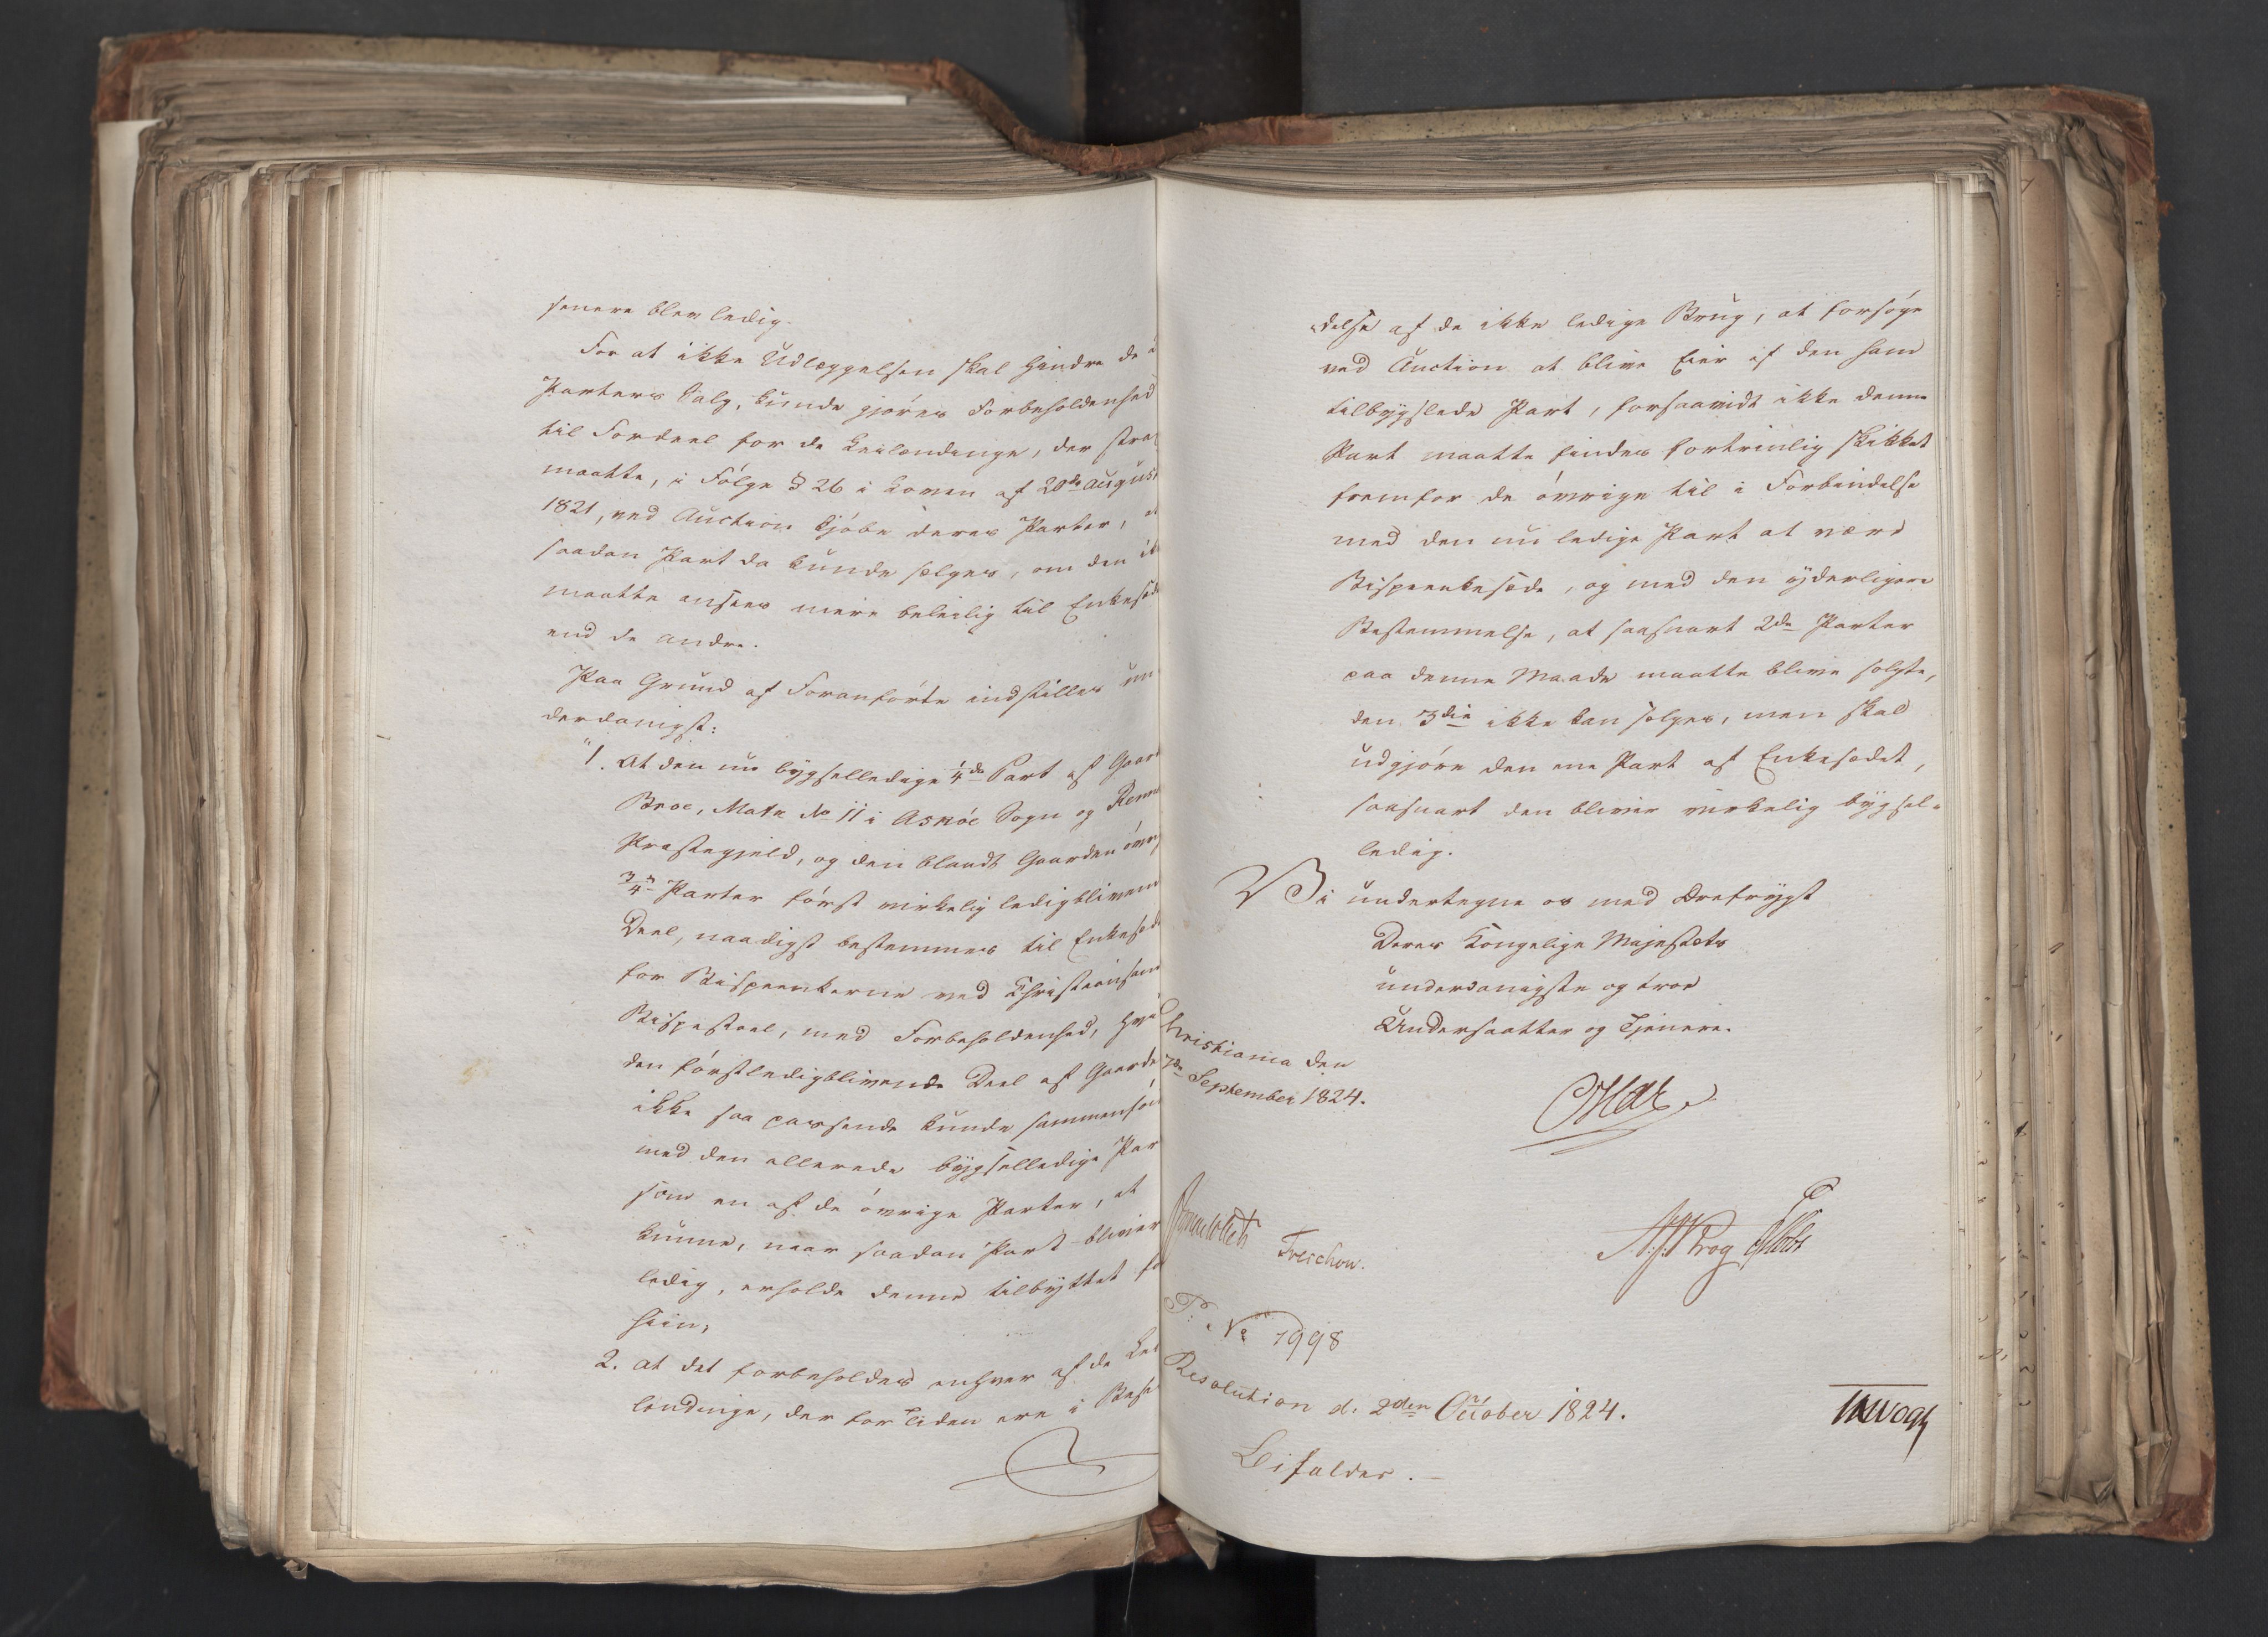 senere blev ledig.
For at ikke Udlæggelsen skal hindre de
Parters Salg, kunde gjøres Forbeholdenhed
til Fordeel for de Leilændinge, der
maatte, i Følge § 26 i Loven af 20de August
1821, ved Auction kjøbe deres Parter,
saadan Part da kunde sælges, om den
maatte ansees mere beleilig til Enkesæde
end de andre.
Paa Grund af Foranførte indstilles un
derdanigst:
"1. At den nu bygselledige 1/4de Part af Gaard
Broe, Matr No 11 i Askøe Sogn og Renne
Præstegjeld, og den blandt Gaarden øvr
3/4 Parter først virkelig ledigblivende
Deel, naadigst bestemmes til Enkesæde
for Bispeenkerne ved Christiansand
Bispestoel, med Forbeholdenhed, hvis
den førstledigblivende Deel af Gaarden
ikke saa passende kunde sammenføi
med den allerede bygselledige Par
som en af de øvrige Parter, at
kunne, naar saadan Part bliver
ledig, erholde denne tilbyttet for
hiin,
2. at det forbeholdes enhver af de Lei
lændinge, der for Tiden ere i Besid
delse af de ikke ledige Brug, at forsøge
ved Auction at blive Eier af den ham
tilbygslede Part, forsaavidt ikke denne
Part maatte findes fortrinlig skikket
fremfor de øvrige til i Forbindelse
med den nu ledige Part at være
Bispeenkesæde, og med den yderligere
Bestemmelse, at saasnart 2de Parter
paa denne Maade maatte blive solgte,
den 3die ikke kan sælges, men skal
udgjøre den ene Part af Enkesædet,
saasnart den bliver virkelig bygsel-
ledig.
Vi undertegne os med Ærefrygt
Deres Kongelige Majestæts
underdanigste og troe
Undersaatter og Tjenere.
Christiania den
7de September 1824.
Treschow.
Krog
P: No 1998
Resolution d. 2den October 1824.
Bifaldes.